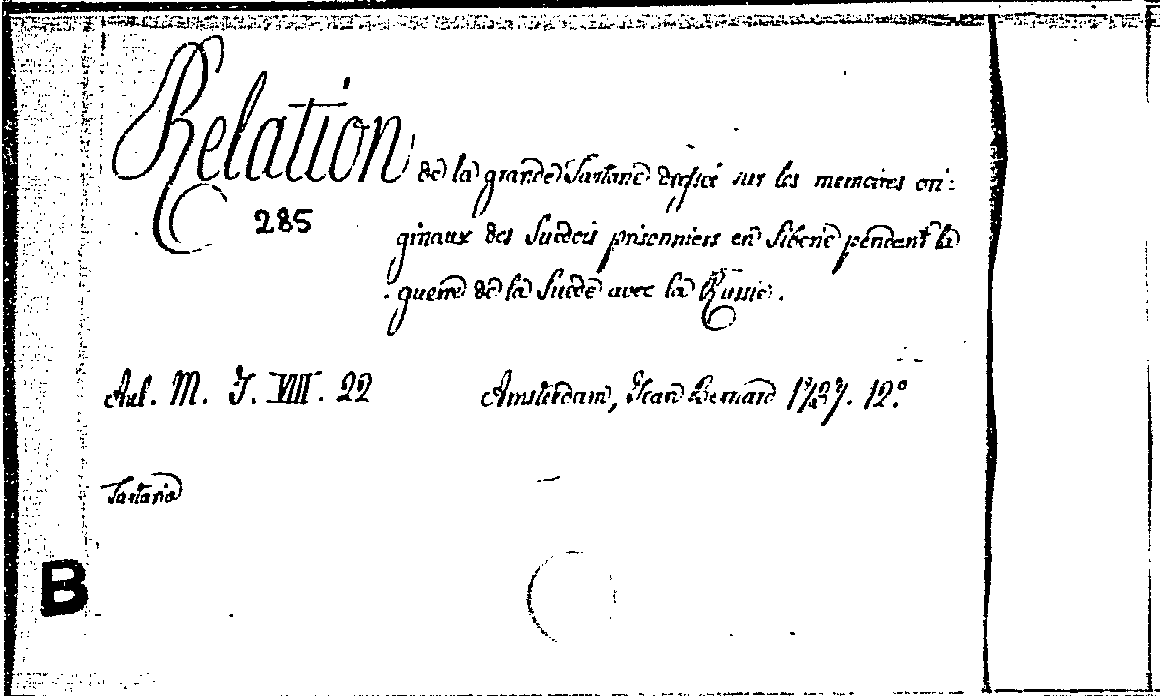 Relation de la grande Tartarie dressé sur les memoires ori:
285
ginaux des Suedois prisonniers en Siberie pendant la
guerre de la Suede avec la Russie.
Aul. M. J. VIII. 22 Amsterdam, Jean Bernard 1737. 12º
Tartaria
B